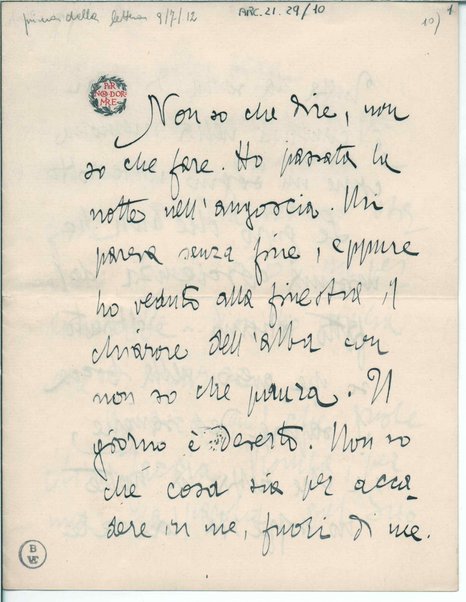 prima della lettera 9/7/12
ARC. 21. 29/10
1
10)
PER
NON DOR
MIRE
Non so che dire, non
so che fare. Ho passata la
notte nell'angoscia. Mi
pareva senza fine, eppure
ho veduto alla finestra il
chiarore dell'alba con
non so che paura. Il
giorno è deserto. Non so
che cosa sia per acca
dere in me, fuori di me.
B